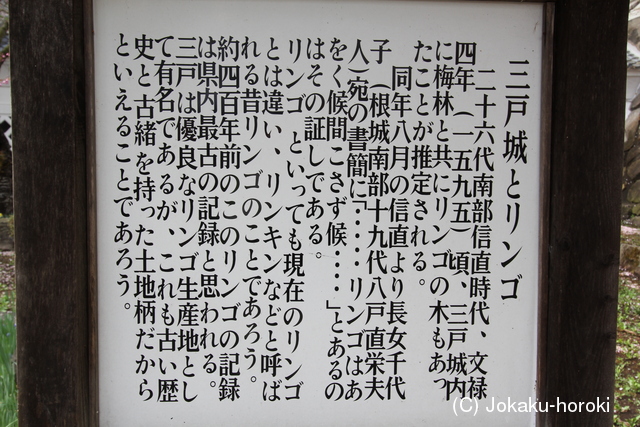 三戸城とリンゴ
二十六代南部信直時代、文禄
四年（一五九五）頃、三戸城内
に梅林と共にリンゴの木もあっ
たことが推定される。
同年八月の信直より長女千代
子（根城南部十九代八戸直栄夫
人）宛の書簡に「‥‥リンゴはあ
をく候間こさず候‥‥」とあるの
はその証しである。
リンゴ といっても現在のリンゴ
とは違い、リンキンなどと呼ば
れる昔リンゴのことであろう。
約四百年前のこのリンゴの記録
は県内最古の記録と思われる。
三戸は優良なリンゴ生産地とし
て有名であるが、これも古い歴
史と古緒を持った土地柄だから
といえることであろう。
(C) Jokaku-horoki